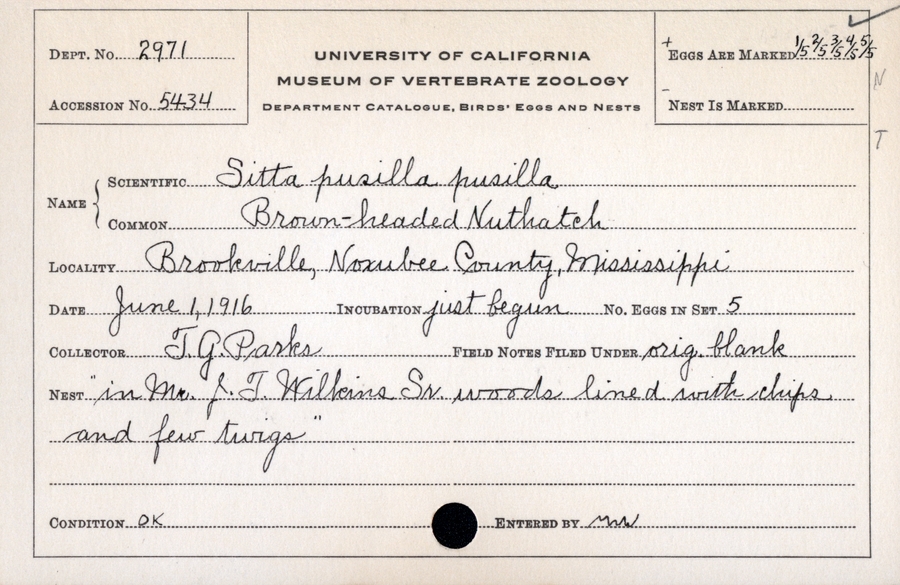 Dept. No. 2971
Accession No. 5434
UNIVERSITY OF CALIFORNIA
MUSEUM OF VERTEBRATE ZOOLOGY
Department Catalogue, Birds' Eggs and Nests
+ Eggs Are Marked 1/5 2/5 3/5 4/5 5/5
- Nest Is Marked
N
T
Name
Scientific Sitta pusilla pusilla
Common Brown-headed Nuthatch
Locality Brookville, Noxubee County, Mississippi
Date June 1, 1916 Incubation just begun No. Eggs in Set 5
Collector T. G. Parks Field Notes Filed Under orig. blank
Nest "in Mr. J. T. Wilkins Sr. woods lined with chips
and few twigs"
Condition OK Entered by